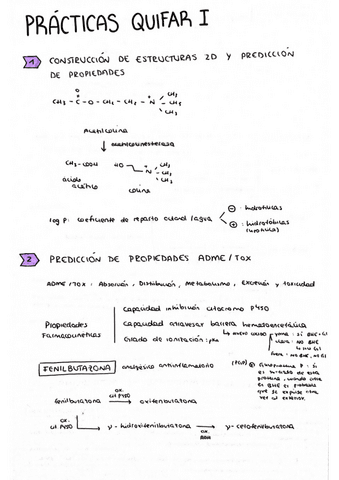 PRÁCTICAS QUIFAR I
1 CONSTRUCCIÓN DE ESTRUCTURAS 2D Y PREDICCIÓN
DE PROPIEDADES
O
CH3 - C - O - CH2 - CH2 - N - CH3
CH3
CH3
Acetilcolina
acetilcolinesterasa
CH3 - COOH HO N - CH3
CH3
CH3
ácido
acético
colina
log P: coeficiente de reparto octanol/agua
- : hidrófilas
+ : hidrófobas
2 PREDICCIÓN DE PROPIEDADES ADME/TOX
ADME/TOX: Absorción, Distribución, Metabolismo, Excreción y toxicidad
Propiedades
Farmacocinéticas
Capacidad inhibición citocromo P450
Capacidad atravesar barrera hematoencefálica
Grado de ionización: pKa
FENILBUTAZONA analgésico antiinflamatorio
fenilbutazona ox. cit P450 oxifenbutazona
ox.
cit P450
γ-hidroxifenilbutazona ox. γ-cetofenilbutazona